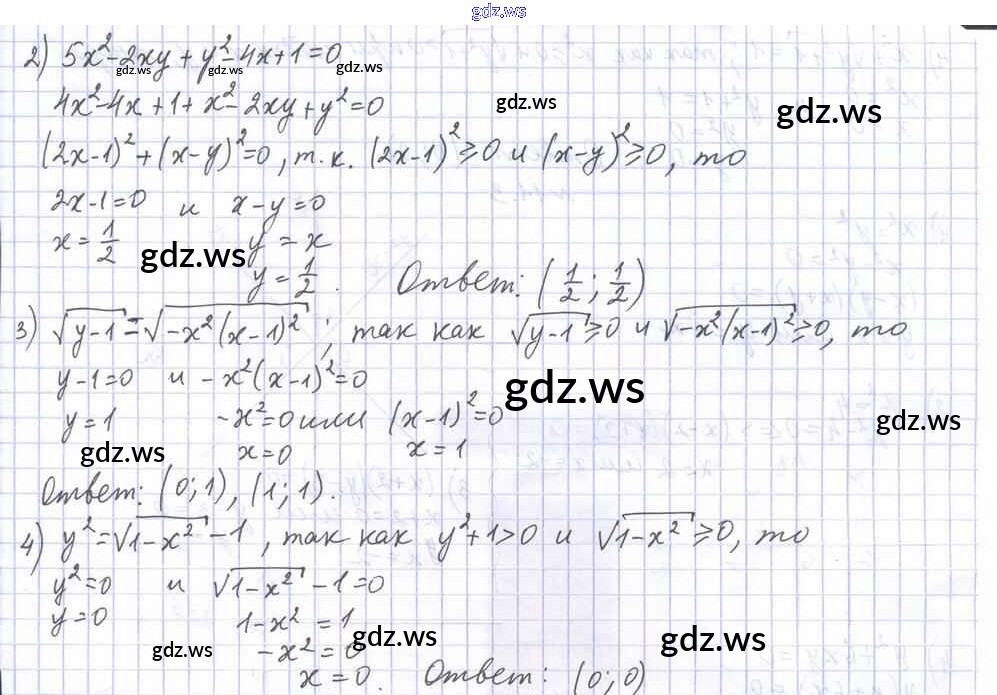 gdz.ws
2) 5x² - 2xy + y² - 4x + 1 = 0
gdz.ws gdz.ws gdz.ws
4x² - 4x + 1 + x² - 2xy + y² = 0
gdz.ws gdz.ws
(2x-1)² + (x-y)² = 0, т.к. (2x-1)² ≥ 0 и (x-y)² ≥ 0, то
2x-1=0 и x-y=0
x = 1/2 y = x
gdz.ws
y = 1/2. Ответ: (1/2; 1/2)
3) √(y-1) = √(-x²(x-1)²); так как √(y-1) ≥ 0 и √(-x²(x-1)²) ≥ 0, то
y-1=0 и -x²(x-1)²=0
gdz.ws
y=1 -x²=0 или (x-1)²=0
gdz.ws gdz.ws
x=0 x=1
Ответ: (0;1), (1;1).
4) y² = √(1-x²) - 1, так как y²+1>0 и √(1-x²) ≥ 0, то
y²=0 и √(1-x²) - 1 = 0
y=0 1-x² = 1
gdz.ws gdz.ws gdz.ws
-x² = 0
x = 0. Ответ: (0;0)